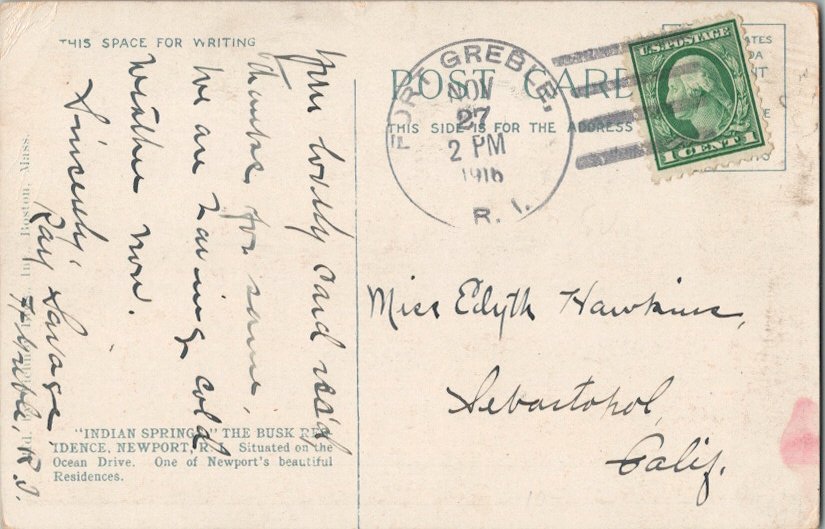 THIS SPACE FOR WRITING
POST CARD
THIS SIDE IS FOR THE ADDRESS
FORT GREBLE,
NOV
27
2 PM
1916
R. I.
U.S. POSTAGE
1 CENT 1
Your lovely card rec'd
thanks for same,
We are having cold
weather now.
Sincerely,
Ray Savage,
Ft Greble, R.I.
Miss Edyth Hawkins,
Sebastopol,
Calif.
"INDIAN SPRING" THE BUSK RES-
IDENCE, NEWPORT, R. I. Situated on the
Ocean Drive. One of Newport's beautiful
Residences.
Boston, Mass.